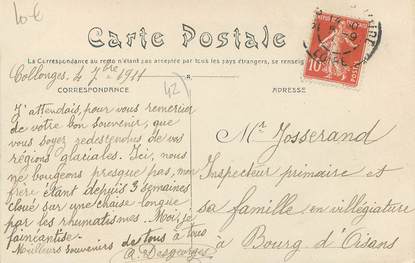 10€
Carte Postale
La Correspondance au recto n'étant pas acceptée par tous les pays étrangers, se renseign
Collonges. 4 7bre 1911
42
CORRESPONDANCE
ADRESSE
10
J'attendais, pour vous remercier
de votre bon souvenir, que
vous soyez redescendus de vos
régions glaciales. Ici, nous
ne bougeons presque pas, mon
frère étant depuis 3 semaines
cloué sur une chaise longue
par les rhumatismes. Moi, je
fainéantise.
Meilleurs souvenirs de tous à tous
a Desgeorges
Mr Josserand
Inspecteur primaire et
sa famille en villégiature
à Bourg d'Oisans